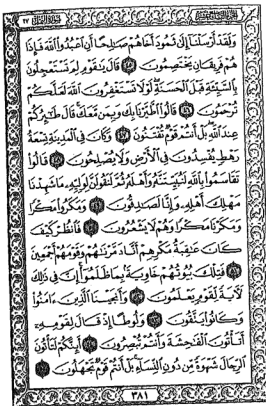 وَلَقَدْ أَرْسَلْنَا إِلَىٰ ثَمُودَ أَخَاهُمْ صَالِحًا أَنِ اعْبُدُوا اللَّهَ فَإِذَا
هُمْ فَرِيقَانِ يَخْتَصِمُونَ ٤٥ قَالَ يَا قَوْمِ لِمَ تَسْتَعْجِلُونَ
بِالسَّيِّئَةِ قَبْلَ الْحَسَنَةِ لَوْلَا تَسْتَغْفِرُونَ اللَّهَ لَعَلَّكُمْ
تُرْحَمُونَ ٤٦ قَالُوا اطَّيَّرْنَا بِكَ وَبِمَن مَّعَكَ قَالَ طَائِرُكُمْ
عِندَ اللَّهِ بَلْ أَنتُمْ قَوْمٌ تُفْتَنُونَ ٤٧ وَكَانَ فِي الْمَدِينَةِ تِسْعَةُ
رَهْطٍ يُفْسِدُونَ فِي الْأَرْضِ وَلَا يُصْلِحُونَ ٤٨ قَالُوا
تَقَاسَمُوا بِاللَّهِ لَنُبَيِّتَنَّهُ وَأَهْلَهُ ثُمَّ لَنَقُولَنَّ لِوَلِيِّهِ مَا شَهِدْنَا
مَهْلِكَ أَهْلِهِ وَإِنَّا لَصَادِقُونَ ٤٩ وَمَكَرُوا مَكْرًا
وَمَكَرْنَا مَكْرًا وَهُمْ لَا يَشْعُرُونَ ٥٠ فَانظُرْ كَيْفَ
كَانَ عَاقِبَةُ مَكْرِهِمْ أَنَّا دَمَّرْنَاهُمْ وَقَوْمَهُمْ أَجْمَعِينَ
٥١ فَتِلْكَ بُيُوتُهُمْ خَاوِيَةً بِمَا ظَلَمُوا إِنَّ فِي ذَٰلِكَ
لَآيَةً لِّقَوْمٍ يَعْلَمُونَ ٥٢ وَأَنجَيْنَا الَّذِينَ آمَنُوا
وَكَانُوا يَتَّقُونَ ٥٣ وَلُوطًا إِذْ قَالَ لِقَوْمِهِ
أَتَأْتُونَ الْفَاحِشَةَ وَأَنتُمْ تُبْصِرُونَ ٥٤ أَئِنَّكُمْ لَتَأْتُونَ
الرِّجَالَ شَهْوَةً مِّن دُونِ النِّسَاءِ بَلْ أَنتُمْ قَوْمٌ تَجْهَلُونَ ٥٥
٣٨١